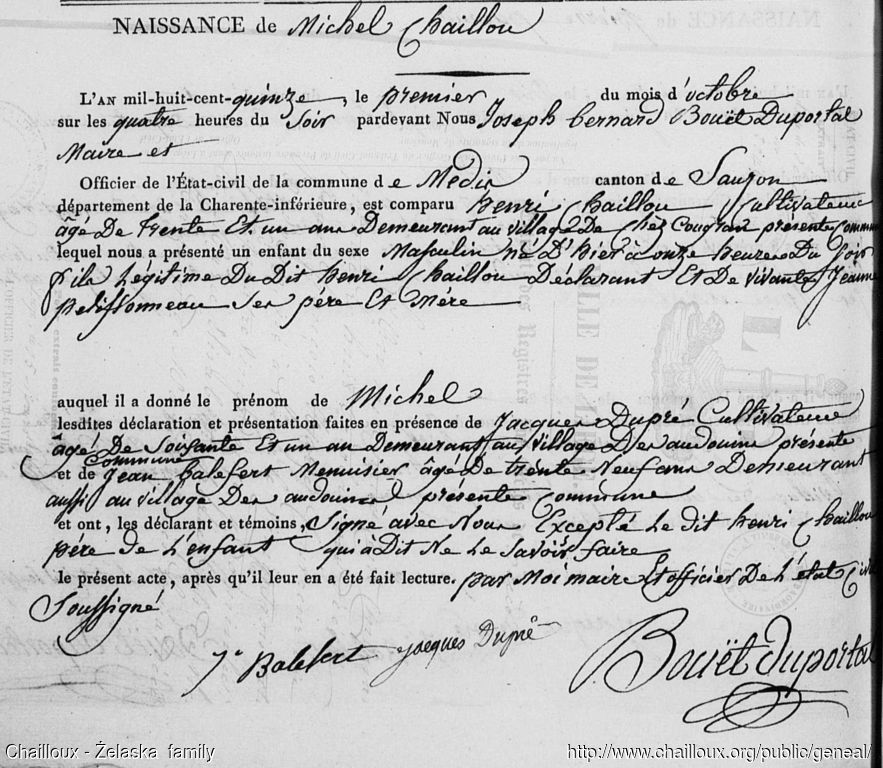 NAISSANCE de Michel Chaillou
L'AN mil-huit-cent-quinze, le premier du mois d'octobre
sur les quatre heures du Soir pardevant Nous Joseph bernard Bouët Duportal
Maire et
Officier de l'État-civil de la commune de Médis canton de Saujon
département de la Charente-inférieure, est comparu henri Chaillou Cultivateur
âgé De trente Et un ans Demeurant au village De chez Cougran présente Commune
lequel nous a présenté un enfant du sexe Masculin né D'hier à onze heures Du Soir
fils Légitime Du Dit henri Chaillou Déclarant Et De vivante Jeanne
petissonneau Ses père Et Mère
auquel il a donné le prénom de Michel
lesdites déclaration et présentation faites en présence de Jacques Dupré Cultivateur
âgé De Soisante Et un an Demeurant au village Des audouins présente
Commune
et de Jean Balefert Menusier âgé De trente Neuf ans Demeurant
aussi au village Des audouins présente Commune
et ont, les déclarant et témoins, Signé avec Nous Excepté Le dit henri Chaillou
père de L'enfant qui à Dit Ne Le Savoir faire
le présent acte, après qu'il leur en a été fait lecture. par Moi maire Et officier De L'état Civil
Soussigné
Je Balefert Jacques Dupré
Bouët Duportal
Chailloux - Żelaska family http://www.chailloux.org/public/geneal/